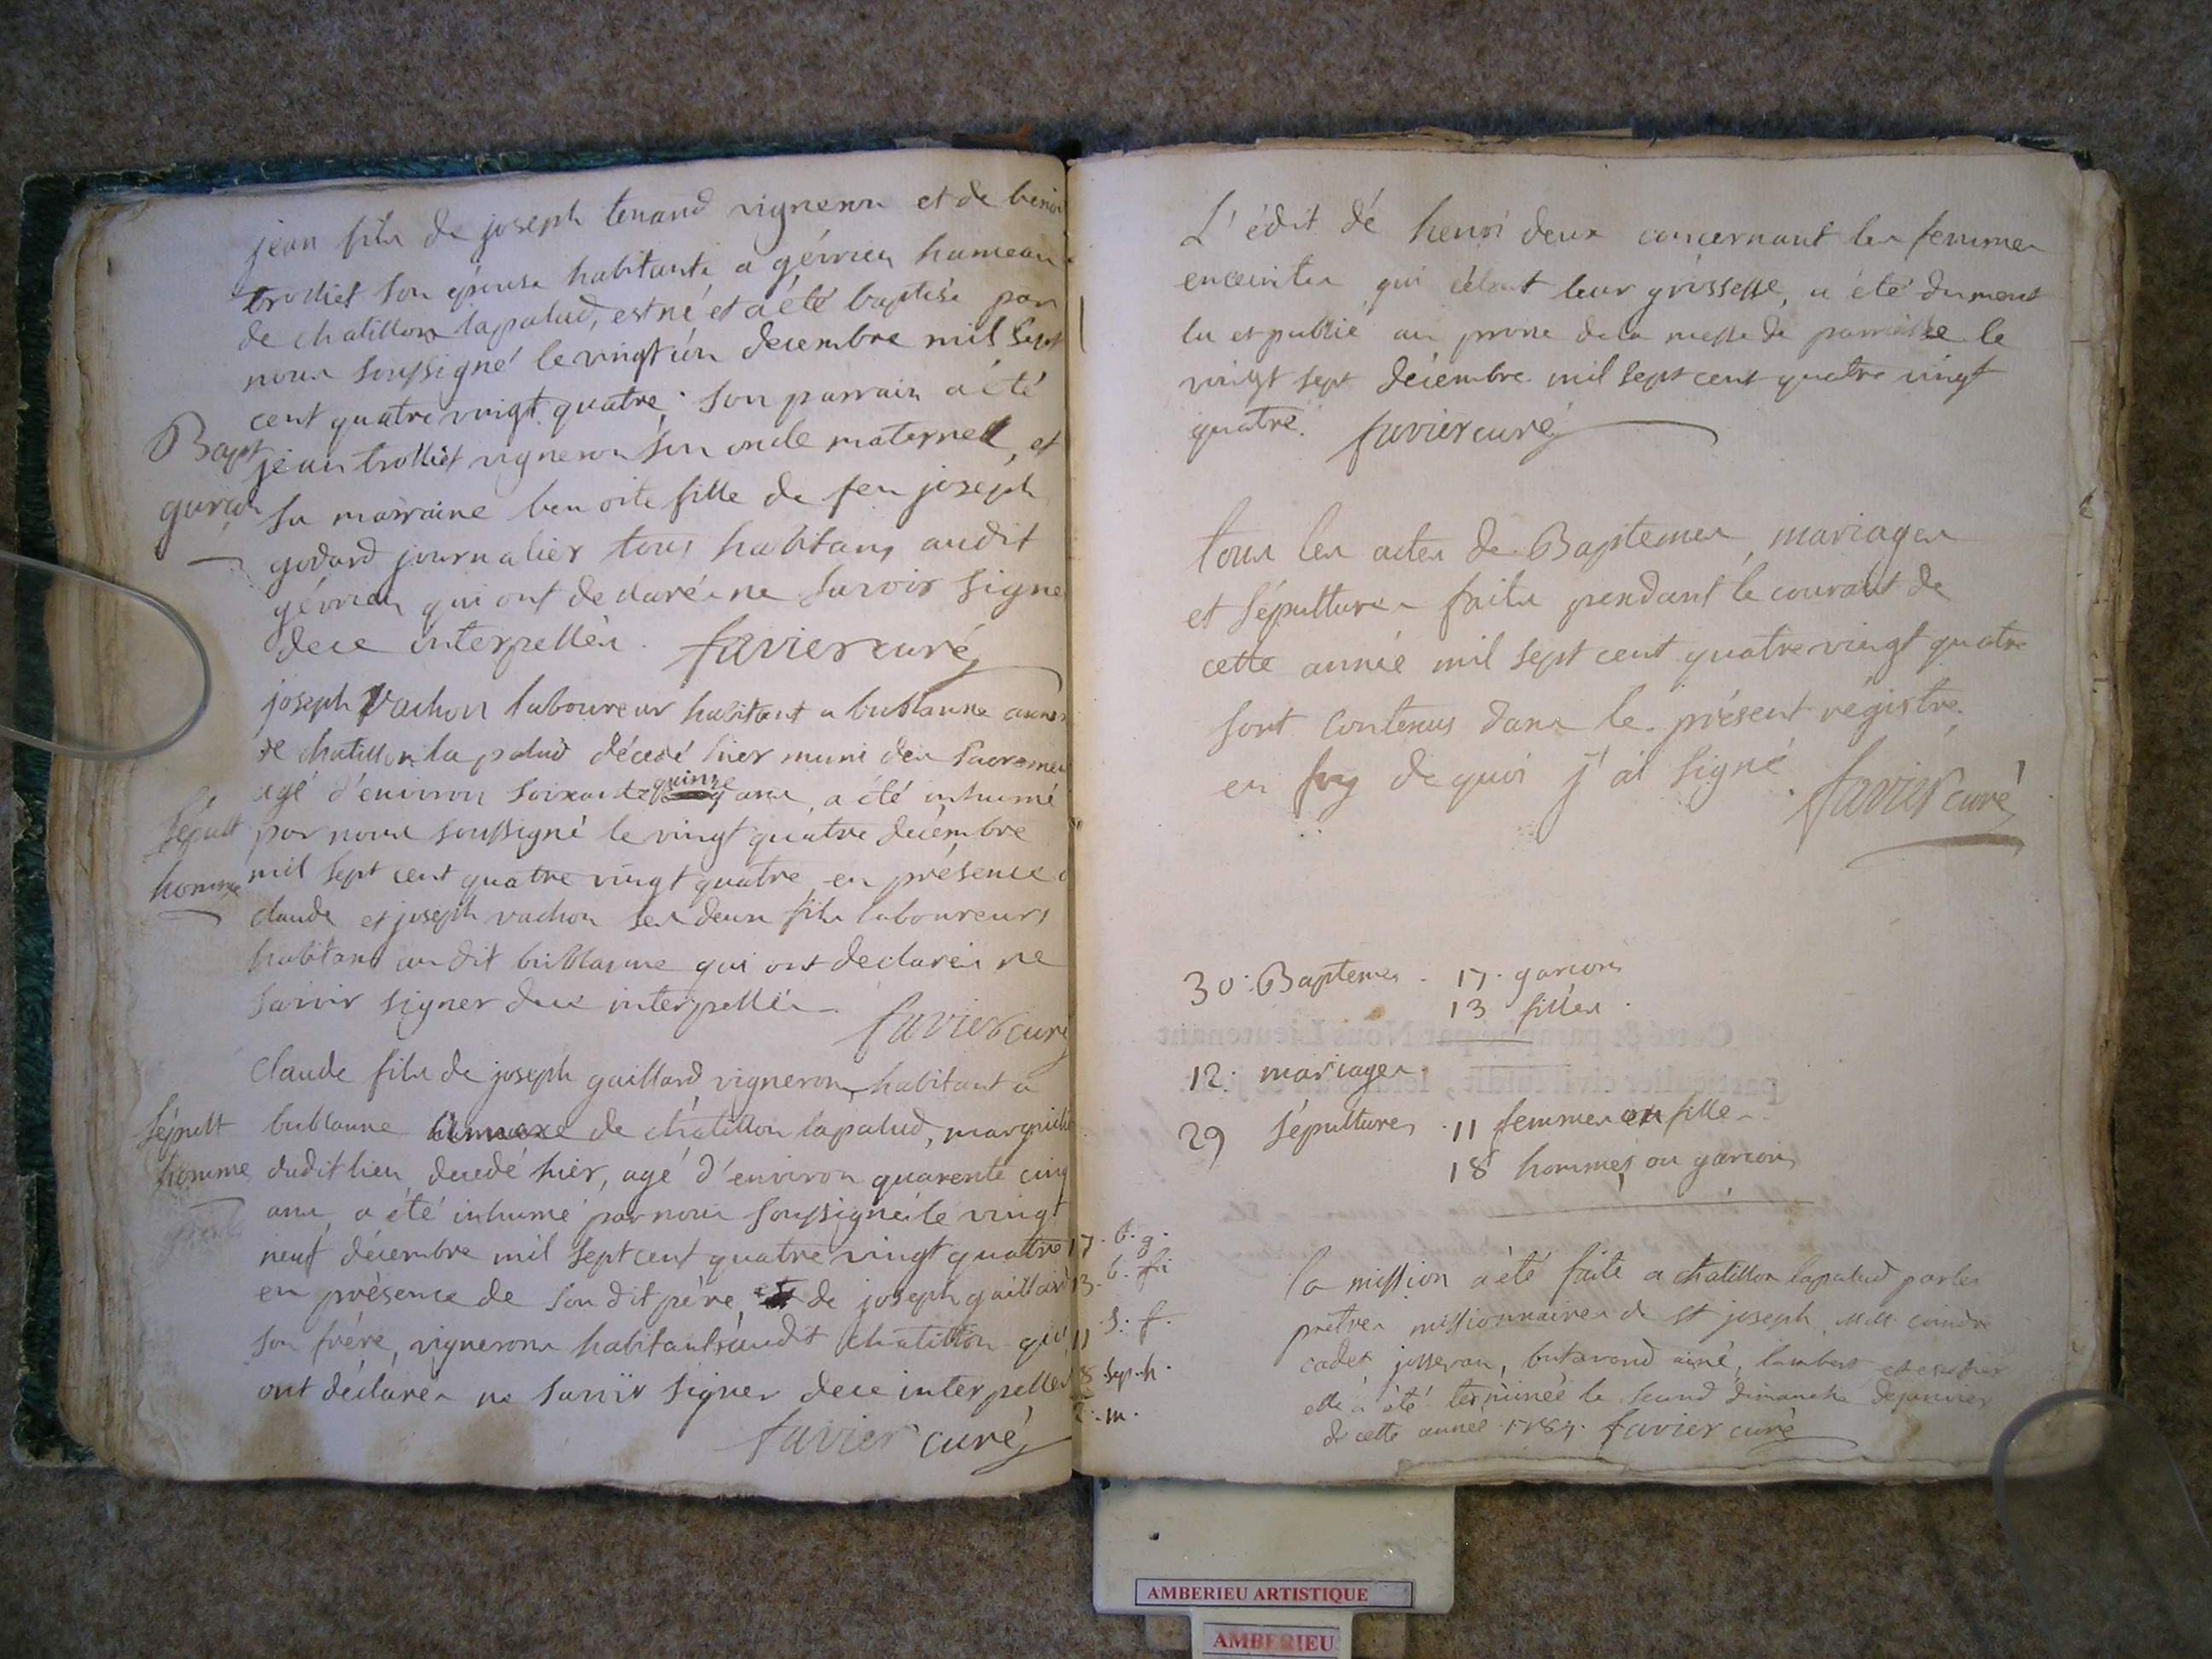 jean fils de joseph tenand vigneron et de benoi
trolliet son épouse habitants a gévrieu hameau
de chatillon lapalud, est né et a été baptisé par
nous soussigné le vingt un decembre mil sept
cent quatre vingt quatre. son parrain a été
Bapt
jean trolliet vigneron son oncle maternel, et
garçon
sa marraine benoite fille de feu joseph
godard journalier tous habitans audit
gévrieu qui ont declarés ne savoir signe
dece interpellés. favier curé
joseph vachon laboureur habitant a bublanne annex
de chatillon la palud décédé hier muni des sacremen
agé d'environ soixante quinze ans, a été inhumé
Sépult
par nous soussigné le vingt quatre décembre
homme
mil sept cent quatre vingt quatre en présence d
claude et joseph vachon ses deux fils laboureurs
habitans audit bublanne qui ont declarés ne
savoir signer dece interpellés
favier curé
Claude fils de joseph gaillard vigneron habitant a
Sépult
bublanne annexe de chatillon lapalud, marguill
homme
dudit lieu, decedé hier, agé d'environ quarente cinq
ans, a été inhumé par nous soussigné le vingt
neuf décembre mil sept cent quatre vingt quatre
en présence de son dit père, et de joseph gaillard
son frère, vignerons habitants audit chatillon qui
ont déclarés ne savoir signer dece interpellés
favier curé
L'édit de henri deux concernant les femmes
enceintes qui célent leur grossesse, a été dument
lu et publié au prone de la messe de parroisse le
vingt sept décembre mil sept cent quatre vingt
quatre. favier curé
tous les actes de Baptemes, mariages
et sépultures faits pendant le courant de
cette année mil sept cent quatre vingt quatre
sont contenus dans le présent régistre.
en foy de quoi j'ai signé. favier curé
30. Baptemes. 17. garcons
13 filles.
Cotté & paraphé par Nous Lieutenant
12. mariages.
particulier civil
29 sépultures. 11 femmes ou filles
18 hommes ou garcons
17. b. g.
13. b. fi
11 s. f.
18 sep. h.
12. m.
la mission a été faite a chatillon lapalud par les
pretres missionnaires de st joseph, MM. coindre
cadet josseran, butavand ainé, lambert
elle a été terminée le second dimanche de janvier
de cette année 1784. favier curé
AMBERIEU ARTISTIQUE
AMBERIEU